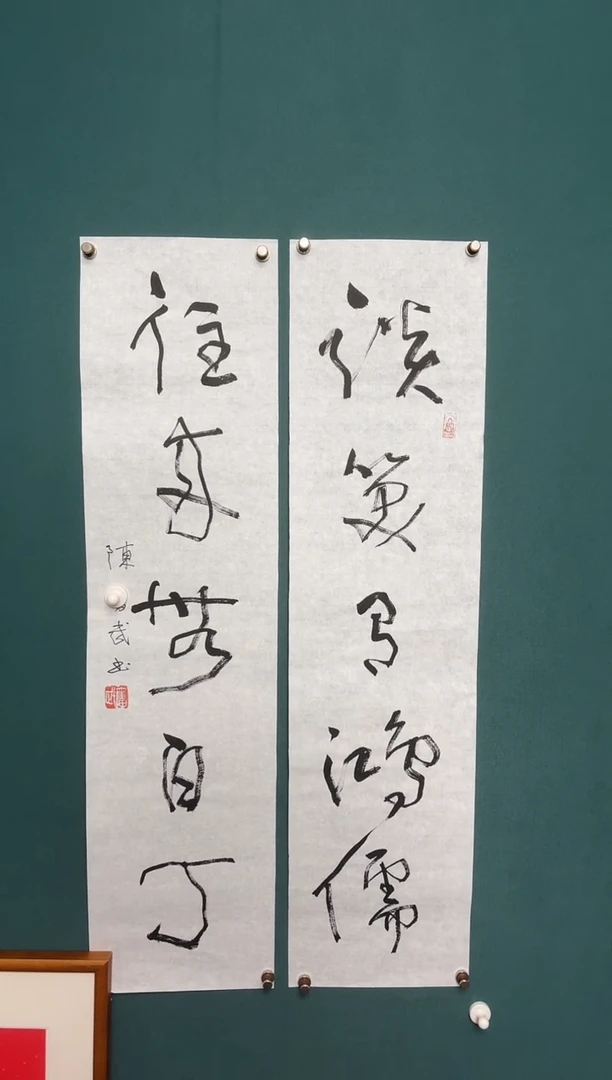 談笑有鴻儒
往來無白丁
陳 武書